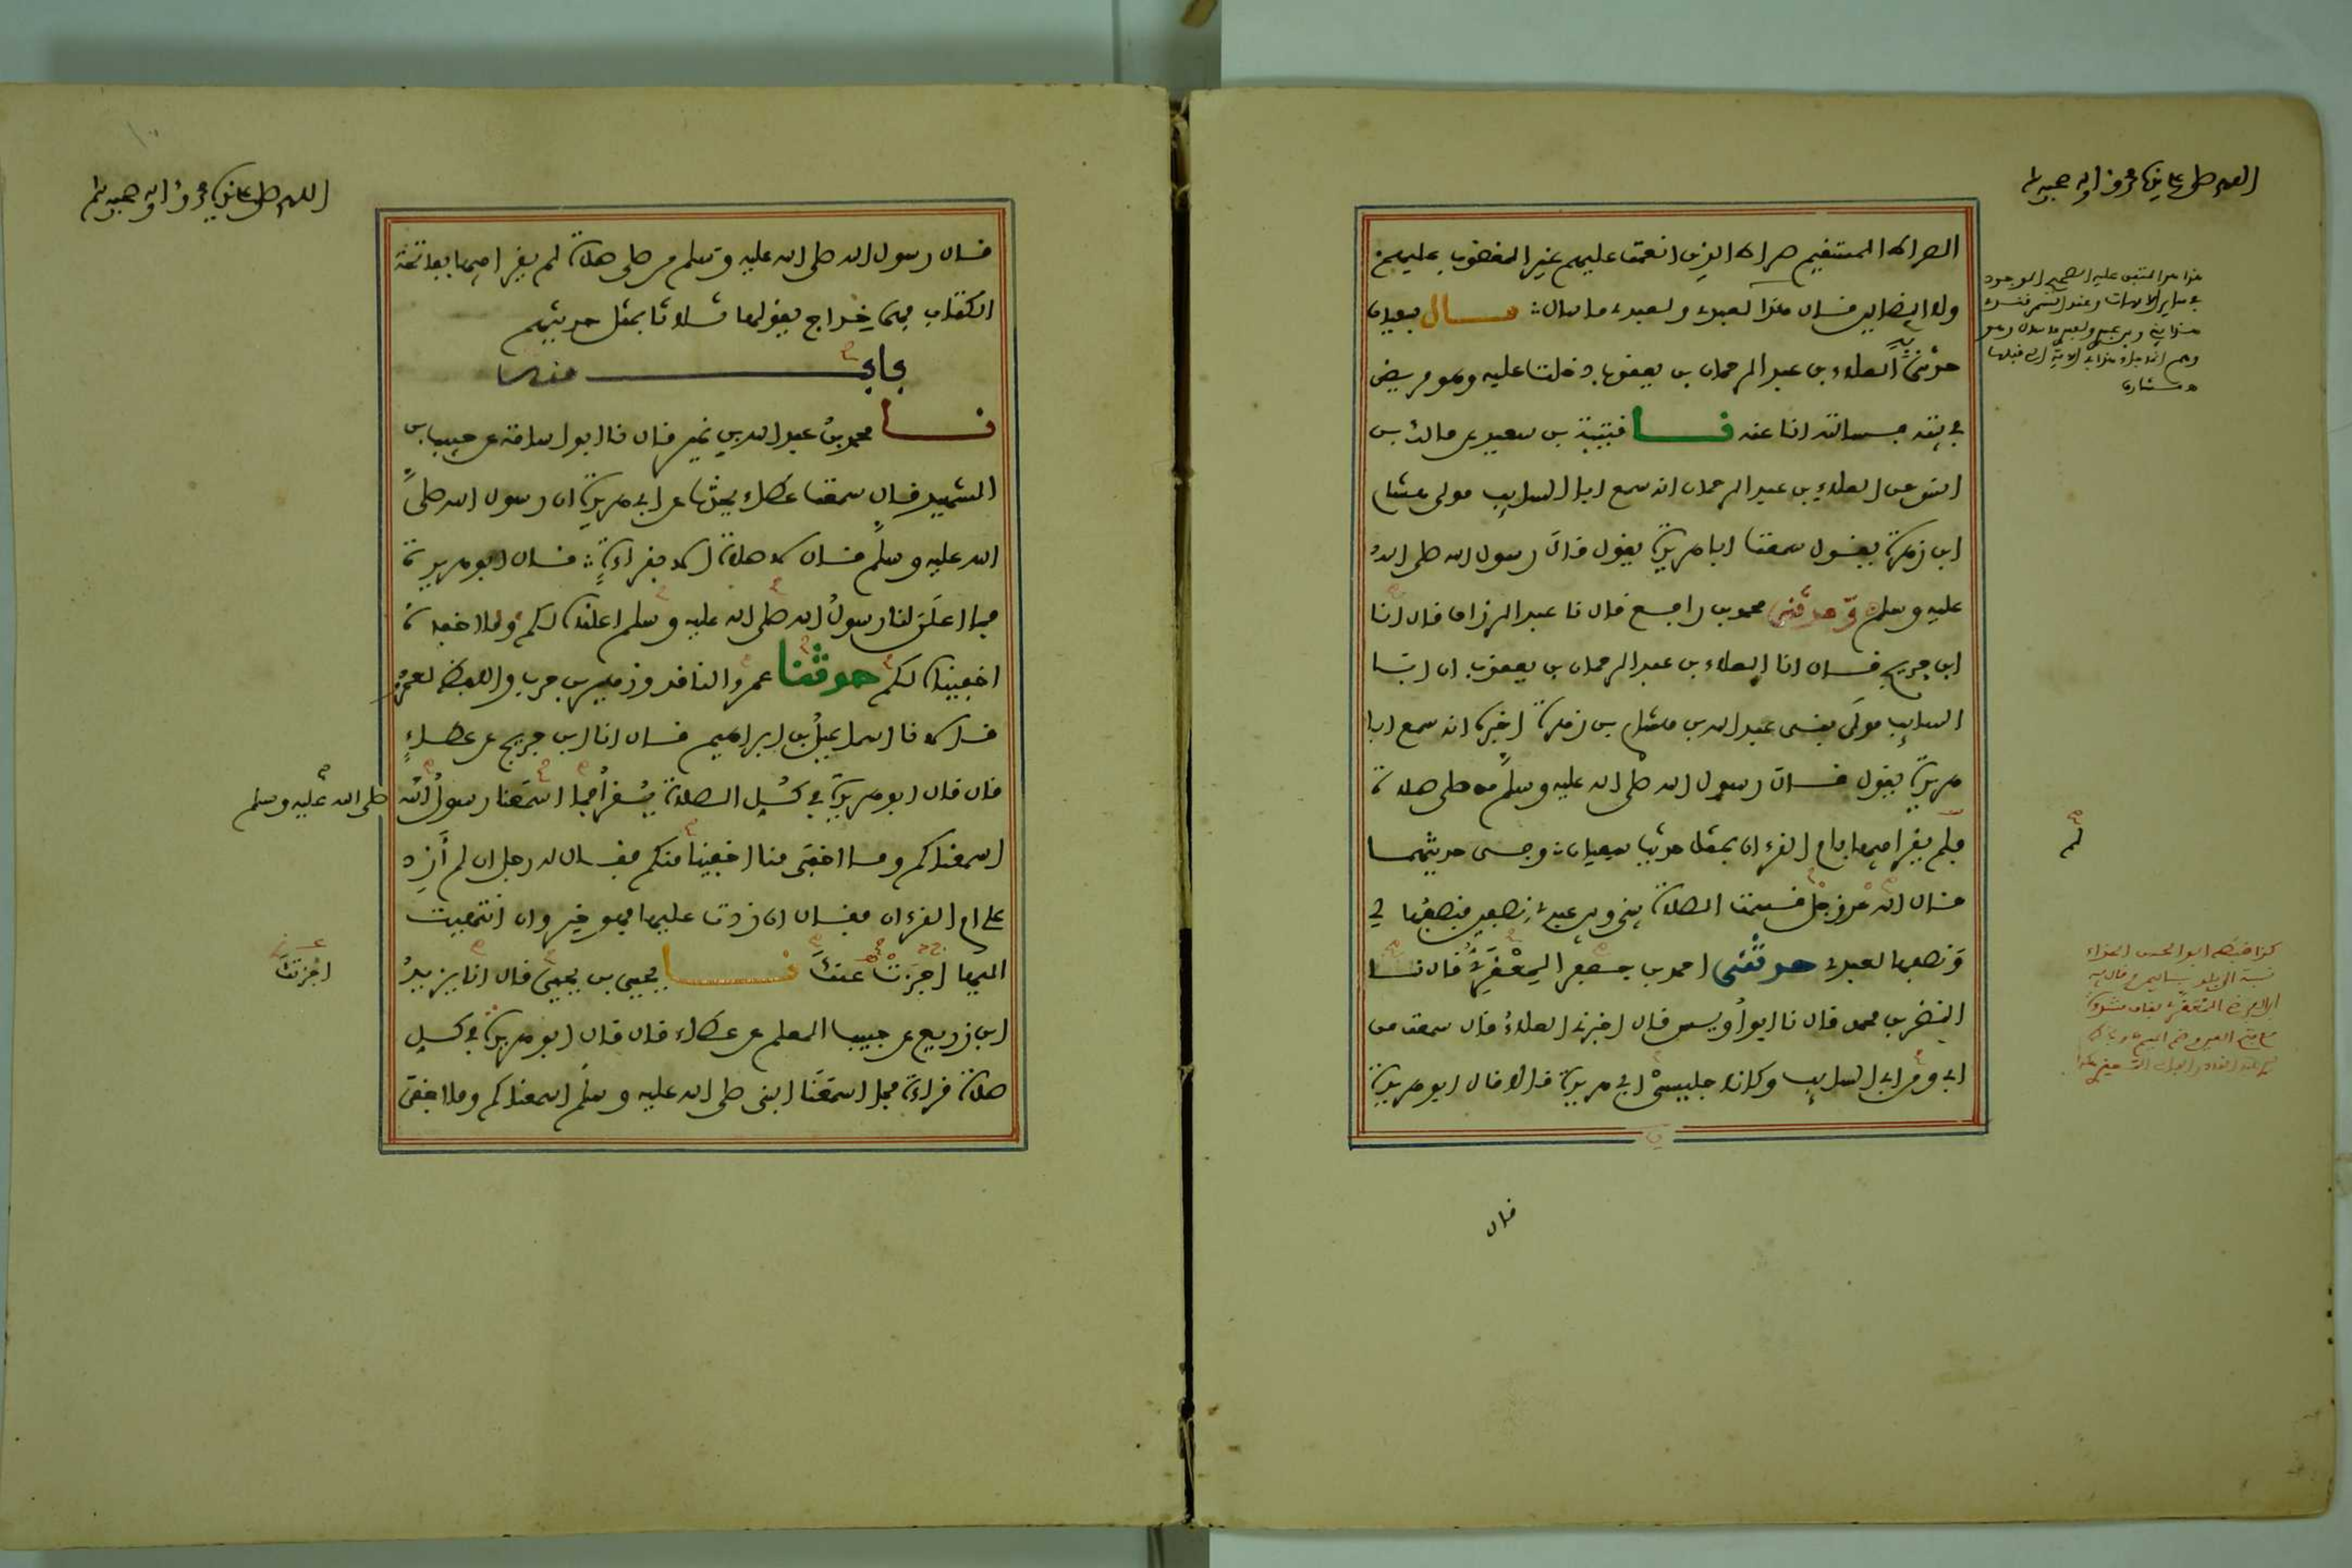 اللهم صل على سيدنا محمد وءاله وصحبه وسلم
الصراط المستقيم صراط الذين انعمت عليهم غير المغضوب عليهم
ولا الضالين قال هذا لعبدي ولعبدي ما سال : قال سفيان
حدثني به العلاء بن عبد الرحمان بن يعقوب دخلت عليه وهو مريض
في بيته فسالته انا عنه نا قتيبة بن سعيد عن مالك بن
انس عن العلاء بن عبد الرحمان انه سمع ابا السايب مولى هشام
ابن زهرة يقول سمعت ابا هريرة يقول قال رسول الله صلى الله
عليه وسلم وحدثني محمد بن رافع قال نا عبد الرزاق قال انا
ابن جريج قال انا العلاء بن عبد الرحمان بن يعقوب ان ابا
السايب مولى بني عبد الله بن هشام بن زهرة اخبره انه سمع ابا
هريرة يقول قال رسول الله صلى الله عليه وسلم من صلى صلاة
فلم يقرا فيها بام القرءان بمثل حديث سفيان وفي حديثهما
قال الله عز وجل قسمت الصلاة بيني وبين عبدي نصفين فنصفها لي
ونصفها لعبدي حدثني احمد بن جعفر المعقري قال نا
النضر بن محمد قال نا ابو اويس قال اخبرني العلاء قال سمعت من
ابي ومن ابي السايب وكانا جليسي ابي هريرة قالا قال ابو هريرة
هذا هو المتفق عليه الصحيح الموجود
لم
كذا ضبطه ابو الحسن
قال
اللهم صل على سيدنا محمد وءاله وصحبه وسلم
قال رسول الله صلى الله عليه وسلم من صلى صلاة لم يقرا فيها بفاتحة
الكتاب فهي خداج يقولها ثلاثا بمثل حديثهم
باب منه
نا محمد بن عبد الله بن نمير قال نا ابو اسامة عن حبيب بن
الشهيد قال سمعت عطاء يحدث عن ابي هريرة ان رسول الله صلى
الله عليه وسلم قال لا صلاة الا بقراءة : قال ابو هريرة
فما اعلن لنا رسول الله صلى الله عليه وسلم اعلناه لكم وما اخفاه
اخفيناه لكم حدثنا عمرو الناقد وزهير بن حرب واللفظ لعمرو
قالا نا اسماعيل بن ابراهيم قال انا ابن جريج عن عطاء
قال قال ابو هريرة في كل الصلاة يقرا فما اسمعنا رسول الله
صلى الله عليه وسلم
اسمعناكم وما اخفى منا اخفينا منكم فقال له رجل ان لم ازد
على ام القرءان فقال ان زدت عليها فهو خير وان انتهيت
اليها اجزت عنك نا يحيى بن يحيى قال انا يزيد
اجزتك
ابن زريع عن حبيب المعلم عن عطاء قال قال ابو هريرة في كل
صلاة قراءة فما اسمعنا النبي صلى الله عليه وسلم اسمعناكم وما اخفى